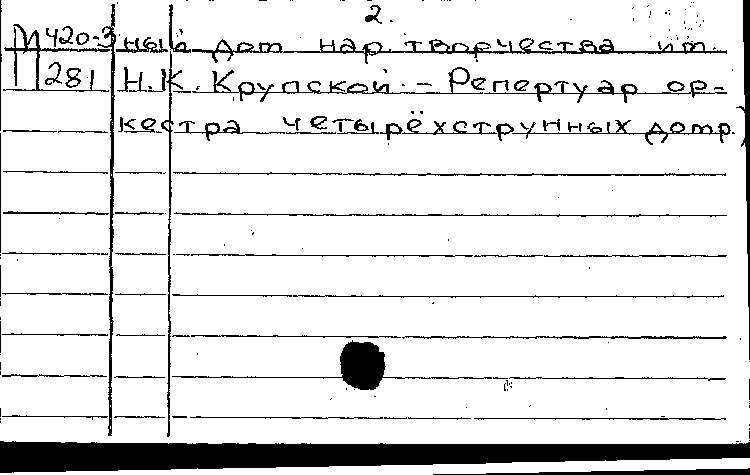 2.
М 420-3 ный дом нар. творчества им.
П 281 Н.К. Крупской. – Репертуар ор-
кестра четырёхструнных домр.)